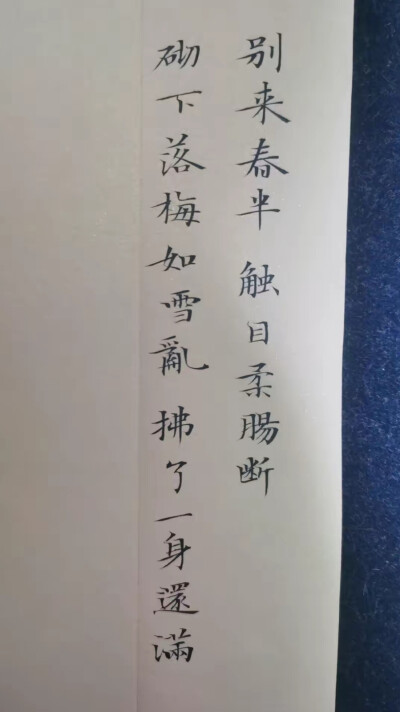 别来春半 触目柔腸断
砌下落梅如雪亂 拂了一身還滿